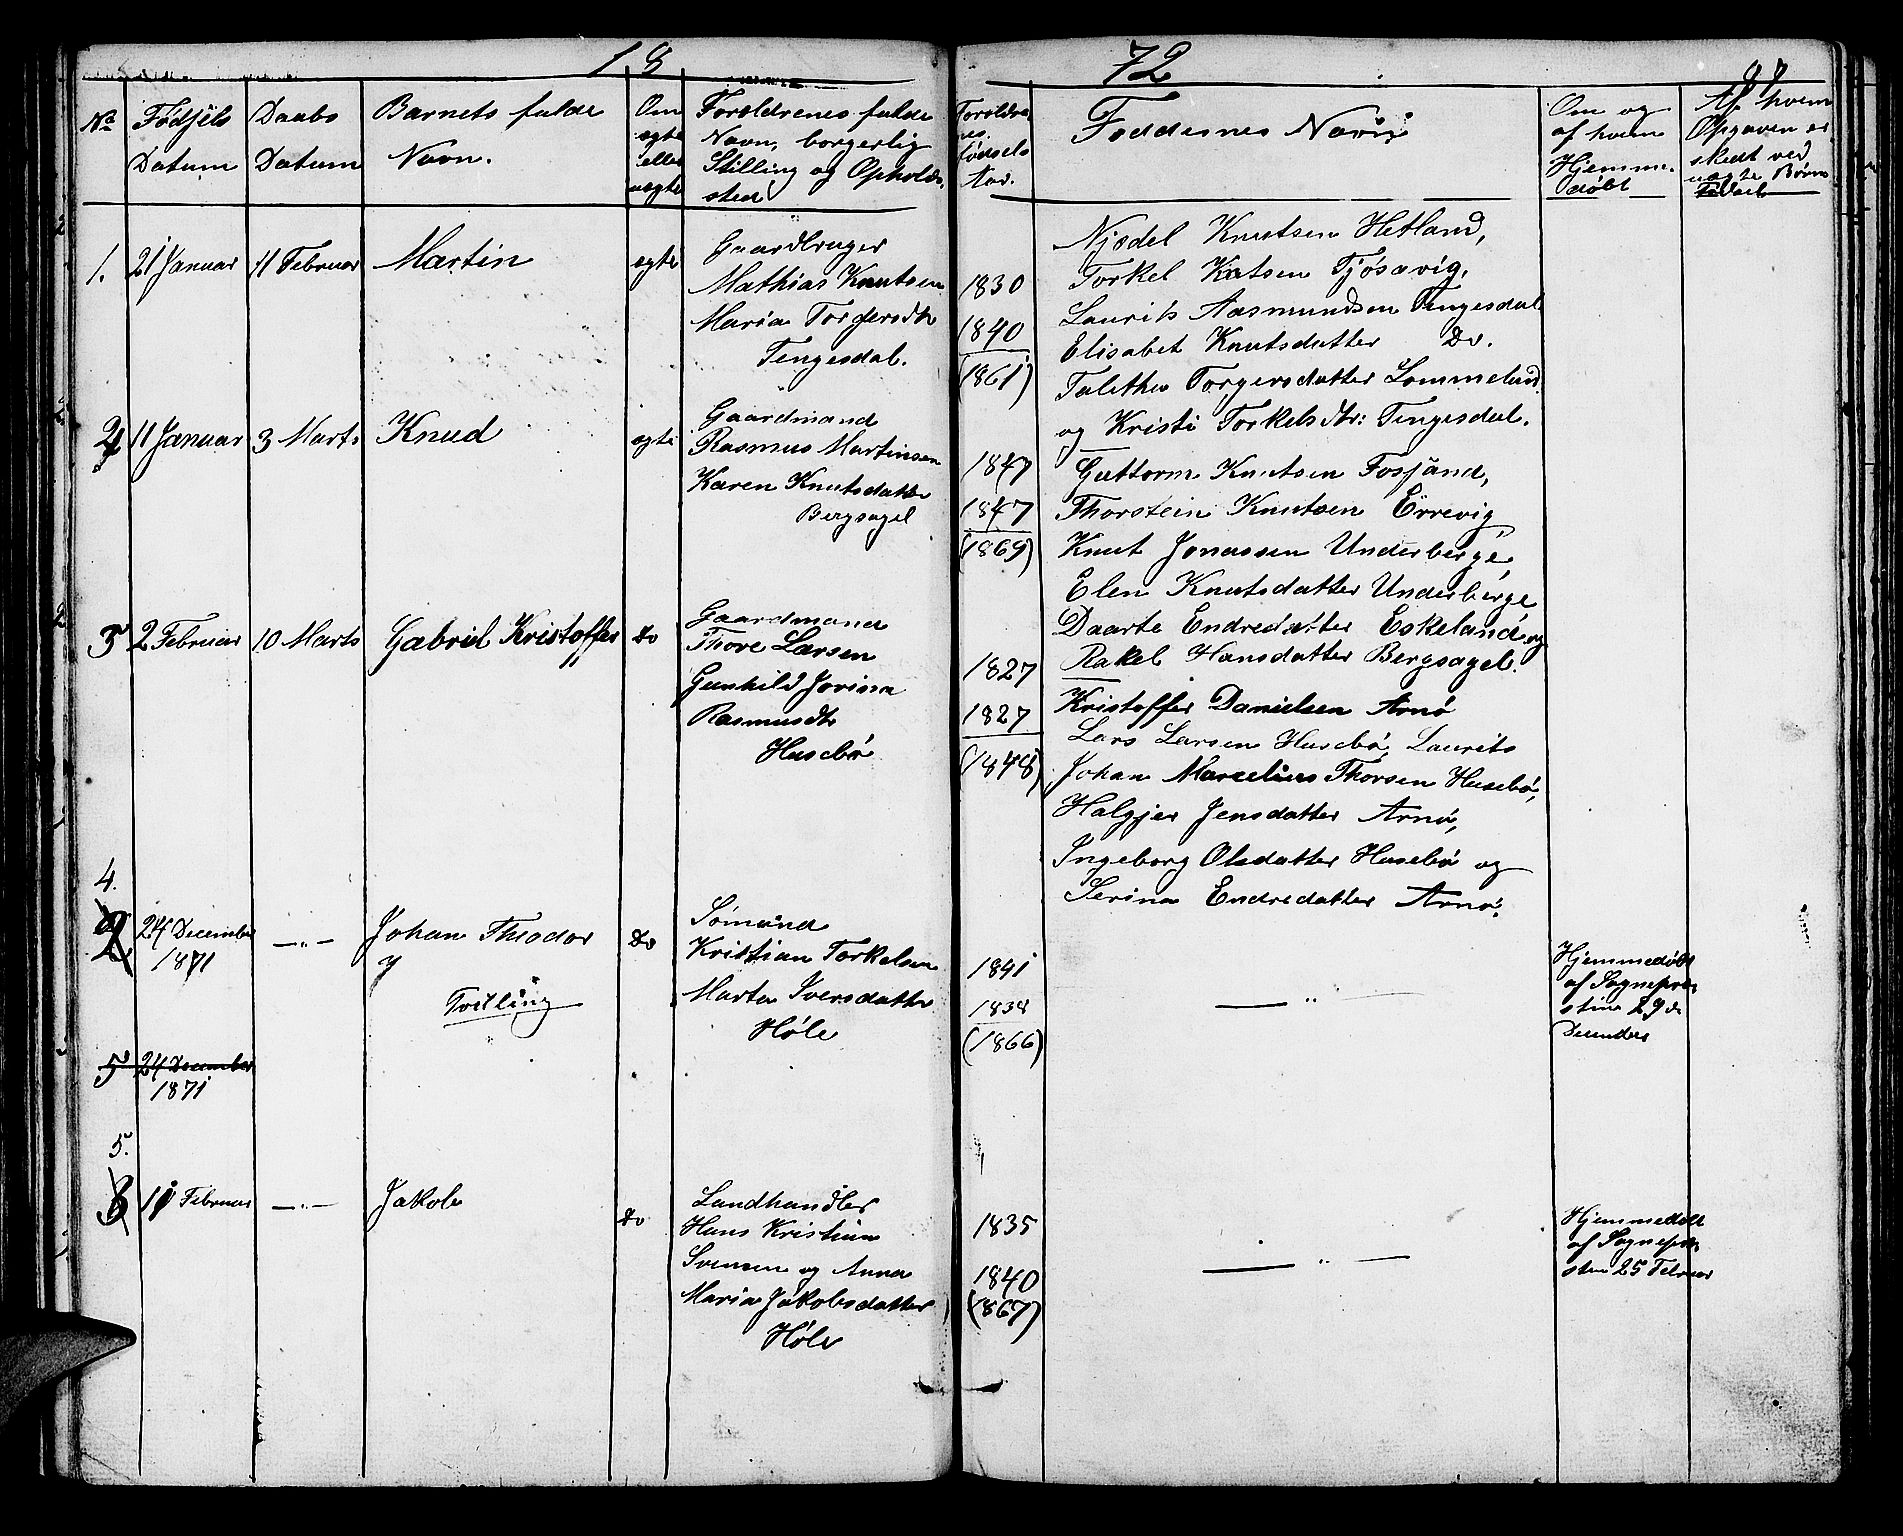 18
72
87
No
Fødsels
Datum
Daabs
Datum
Barnets fulde
Navn.
Om
ægte
eller
uægte
Forældrenes fulde
Navn, borgerlig
Stilling og Opholds-
sted
Forældre-
nes
Fødsels
Aar.
Faddernes Navn
Om og
af hvem
Hjemme-
døbt
Af hvem
Opgaven er
skedt ved
uægte Børns
1.
21 Januar
11 Februar
Martin
ægte
Gaardbruger
Mathias Knutsen
Maria Torgersdtr
Tengesdal.
1830
1840
(1861)
Njædel Knutsen Hetland,
Torkel Kntsen Tjøsævig,
Laurits Aasmundsen Tengesdal
Elisabet Knutsdatter Do.
Talethea Torgersdatter Lommeland
og Kristi Torkelsdtr: Tengesdal.
2
11 Januar
3 Marts
Knud
ægte
Gaardmand
Rasmus Martinsen
Karen Knutsdatter
Bergsagel
1847
1847
(1869)
Guttorm Knutsen Fosjand,
Thorstein Knutsen Errevig,
Knut Jonassen Underberge,
Elen Knutsdatter Underberge
Daarte Endredatter Eskeland og
Rakel Hansdatter Bergsagel.
3
2 Februar
10 Marts
Gabriel Kristoffer
Do
Gaardmand
Thore Larsen
Gunhild Jorina
Rasmusdtr
Husebø
1827
1827
(1848)
Kristoffer Danielsen Arnø
Lars Larsen Husebø, Laurits
Johan Marcelius Thorsen Husebø,
Halgjer Jensdatter Arnø,
Ingeborg Olsdatter Husebø og
Serina Endredatter Arnø.
4.
2
24 December
1871
—„—
Johan Theodor
Tvilling
Do
Sømand
Kristian Torkelsen
Marta Iversdatter
Høle
1841
1838
(1866)
—„—
Hjemmedøbt
af Sognepræ-
sten 29de
December
5
24 December
1871
5.
3
11 Februar
—„—
Jakob
Do
Landhandler
Hans Kristian
Svensen og Anna
Maria Jakobsdatter
Høle
1835
1840
(1867)
—„—
Hjemmedøbt
af Sognepræ-
sten 25 Februar